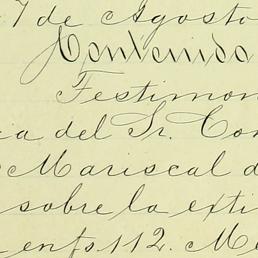 7 de Agosto
Contenido
Testimon
ia del Sr. Con
Mariscal d
sobre la exti
en fs. 112. Me